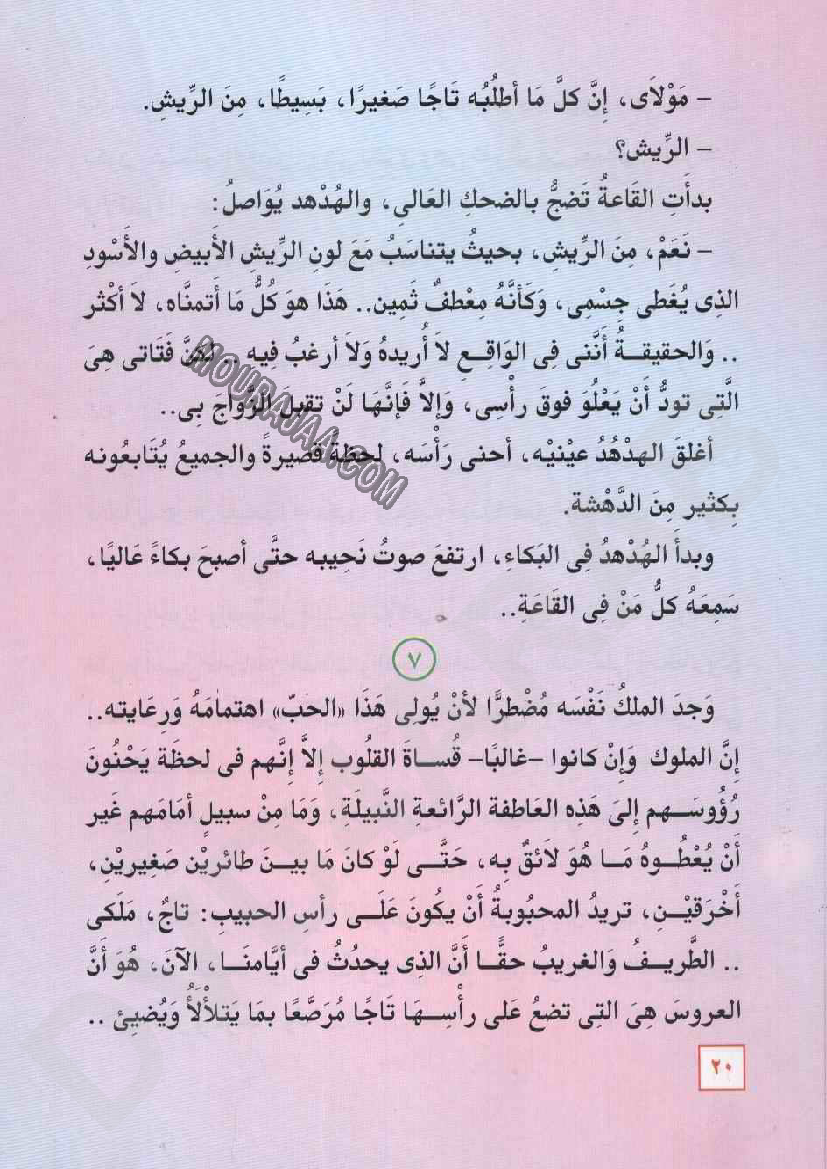 – مَوْلاَى، إِنَّ كلَّ مَا أطلُبُه تَاجًا صَغيرًا، بَسِيطًا، مِنَ الرِّيشِ.
– الرِّيش؟
بدأَتِ القَاعةُ تَضجُّ بالضحكِ العَالى، والهُدْهد يُوَاصلُ:
– نَعَمْ، مِنَ الرِّيشِ، بحيثُ يتناسَبُ مَعَ لونِ الرِّيشِ الأبيضِ والأَسْودِ
الذِى يُغَطى جِسْمِى، وَكأنَّهُ مِعْطفٌ ثَمِين.. هَذَا هوَ كُلُّ مَا أتمنَّاه، لاَ أكْثر
.. وَالحقيقـةُ أنَّنى فِى الوَاقعِ لاَ أُريدهُ وَلاَ أرغبُ فِيهِ .. لكنَّ فَتَاتى هِىَ
الَّتِى تودُّ أَنْ يَعْلُوَ فوقَ رأْسِى، وَإلاَّ فَإنَّهَا لَنْ تقبلَ الزَّواجَ بِى..
أغلقَ الهدْهُدُ عيْنيْه، أحنى رَأْسَه، لحظةً قَصيرةً والجميعُ يُتَابعُونه
بِكثيرٍ مِنَ الدَّهْشة.
وبدأَ الهُدْهدُ فِى البَكاءِ، ارتفعَ صوتُ نَحيبه حتَّى أصبحَ بكاءً عَاليًا،
سَمِعَهُ كلُّ مَنْ فِى القَاعَةِ..
٧
وَجدَ الملكُ نَفْسَه مُضْطرًّا لأنْ يُولِى هَذَا «الحبّ» اهتمامَهُ وَرِعَايته..
إنَّ الملوك وَإنْ كانوا –غالبًا– قُسـاةَ القلُوب إلاَّ إنَّهم فى لحظَة يَحْنُونَ
رُؤُوسَـهم إلىَ هَذِه العَاطفة الرَّائعةِ النَّبيلَةِ، وَمَا مِنْ سبيلٍ أمَامَهم غَير
أَنْ يُعْطُـوهُ مَـا هُوَ لاَئقٌ بِه، حَتَّـى لَوْ كانَ مَا بينَ طائريْن صَغيريْنِ،
أَخْرَقَيْـنِ، تريدُ المحبُوبةُ أَنْ يكُونَ عَلَـى رأسِ الحبيبِ: تاجٌ، مَلَكى
.. الطَّريـفُ وَالغَريبُ حقًّـا أَنَّ الذِى يحدُثُ فى أيَّامنَـا، الآنَ، هُوَ أَنَّ
العروسَ هِىَ التِى تضعُ عَلى رأْسِـهَا تَاجًا مُرَصَّعًا بمَا يَتلأْلَأُ وَيُضيئ ..
٢٠
MOURAJAA.COM